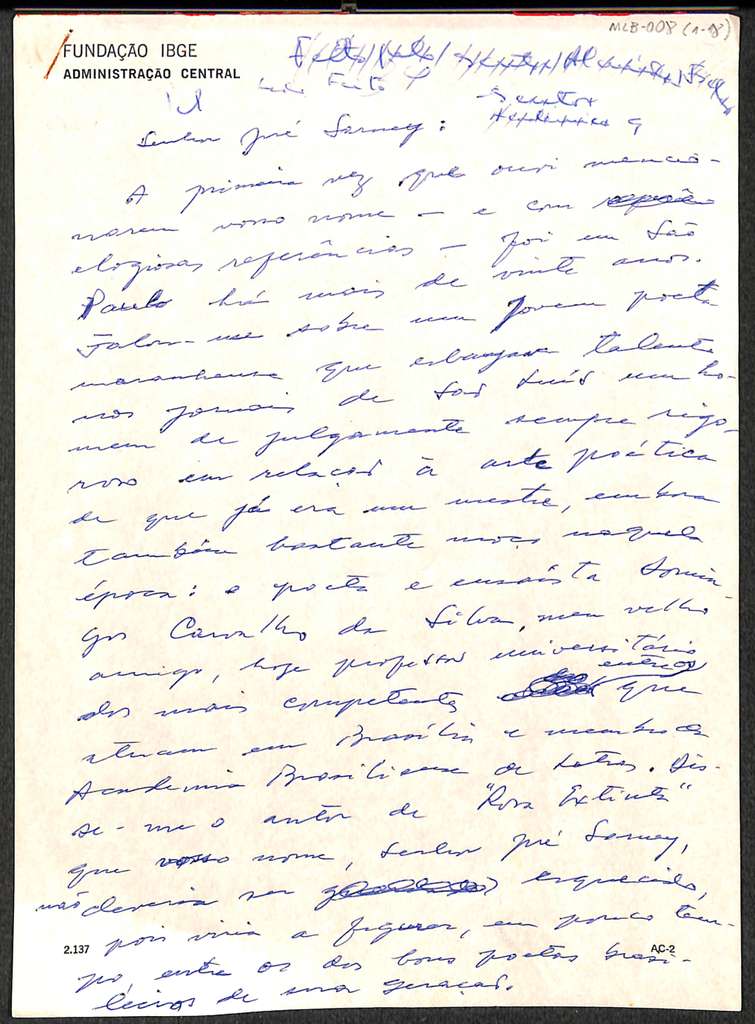 MLB-008 (1-18)
FUNDAÇÃO IBGE
ADMINISTRAÇÃO CENTRAL
Senador
Senhor José Sarney:
A primeira vez que ouvi mencio-
narem vosso nome — e com
elogiosas referências — foi em São
Paulo há mais de vinte anos.
Falou-me sobre um jovem poeta
maranhense que esbanjava talento
nos jornais de São Luís um ho-
mem de julgamento sempre rigo-
roso em relação à arte poética
de que já era um mestre, embora
também bastante moço naquela
época: o poeta e ensaísta Domin-
gos Carvalho da Silva, meu velho
amigo, hoje professor universitário
dos mais competentes entre os que
atuam em Brasília e membro da
Academia Brasiliense de Letras. Dis-
se-me o autor de "Rosa Extinta"
que vosso nome, Senhor José Sarney,
não deveria ser esquecido,
pois viria a figurar, em pouco tem-
po entre os dos bons poetas brasi-
leiros de sua geração.
2.137
AC-2